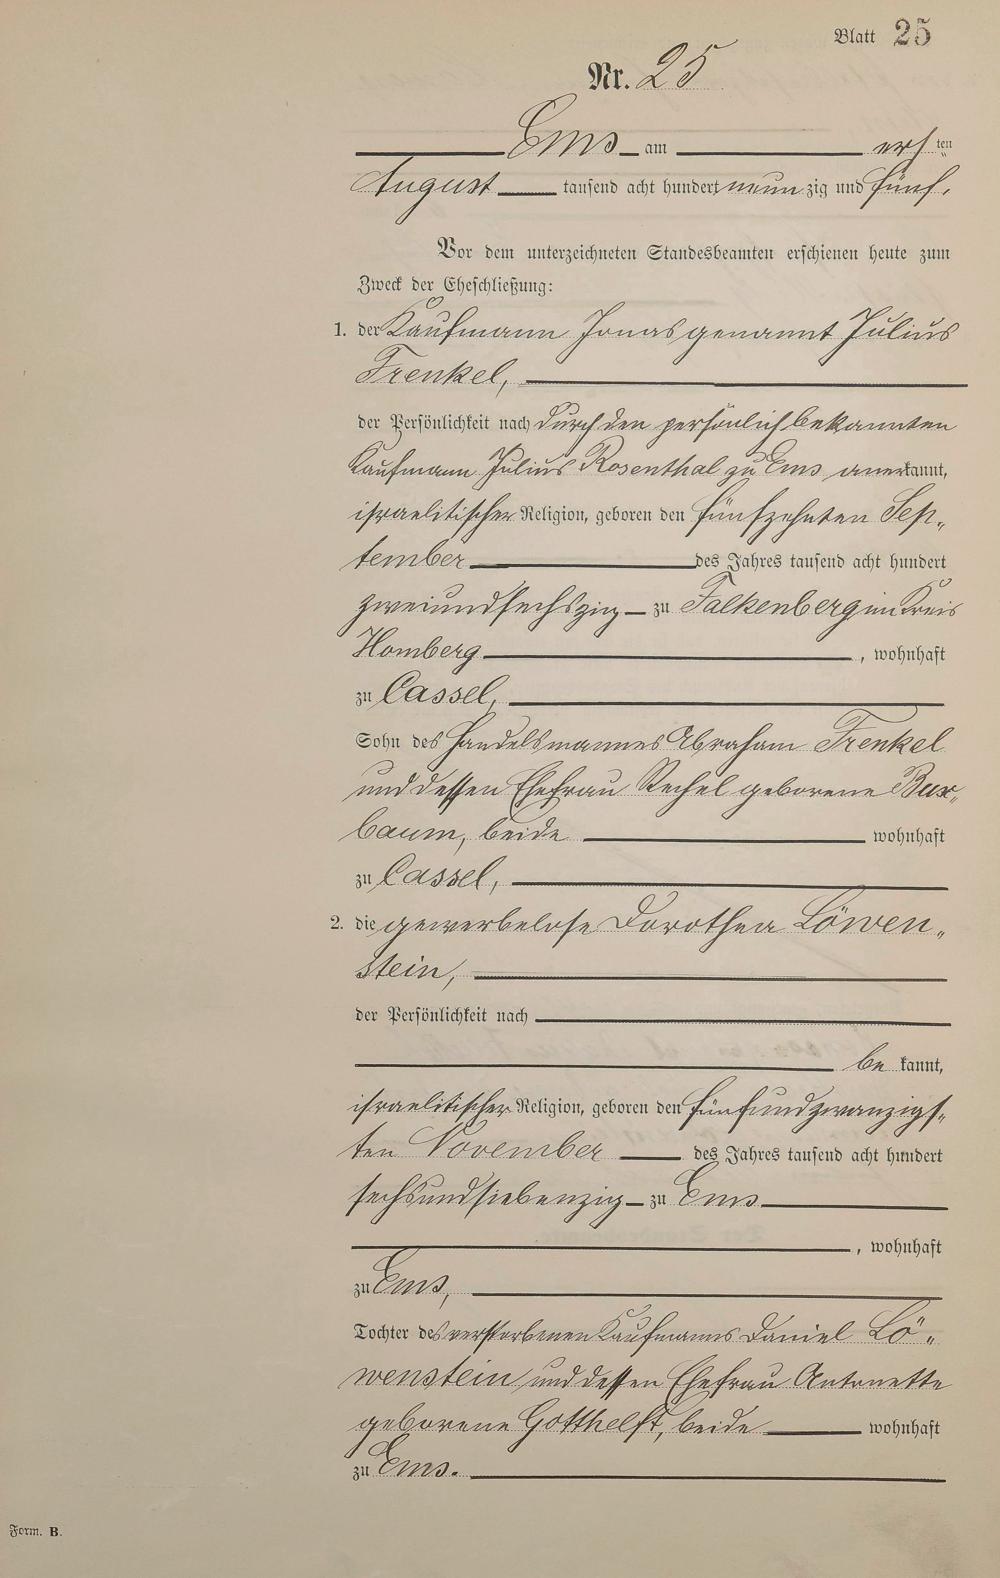 Blatt 25
Nr. 25
Ems am ersten
August tausend acht hundert neunzig und fünf.
Vor dem unterzeichneten Standesbeamten erschienen heute zum
Zweck der Eheschließung:
1. der Kaufmann Jonas genannt Julius
Frenkel,
der Persönlichkeit nach durch den persönlich bekannten
Kaufmann Julius Rosenthal zu Ems anerkannt,
israelitischer Religion, geboren den fünfzehnten Sep„
tember des Jahres tausend acht hundert
zweiundsechszig zu Falkenberg im Kreis
Homberg, wohnhaft
zu Cassel,
Sohn des Handelsmannes Abraham Frenkel
und dessen Ehefrau Rechel geborene Bux„
baum, beide wohnhaft
zu Cassel,
2. die gewerbelose Dorothea Löwen„
stein,
der Persönlichkeit nach
bekannt,
israelitischer Religion, geboren den fünfundzwanzigs„
ten November des Jahres tausend acht hundert
sechsundsiebenzig zu Ems
, wohnhaft
zu Ems,
Tochter des verstorbenen Kaufmanns Daniel Lö„
wenstein und dessen Ehefrau Antonette
geborene Gotthelft, beide wohnhaft
zu Ems.
Form. B.